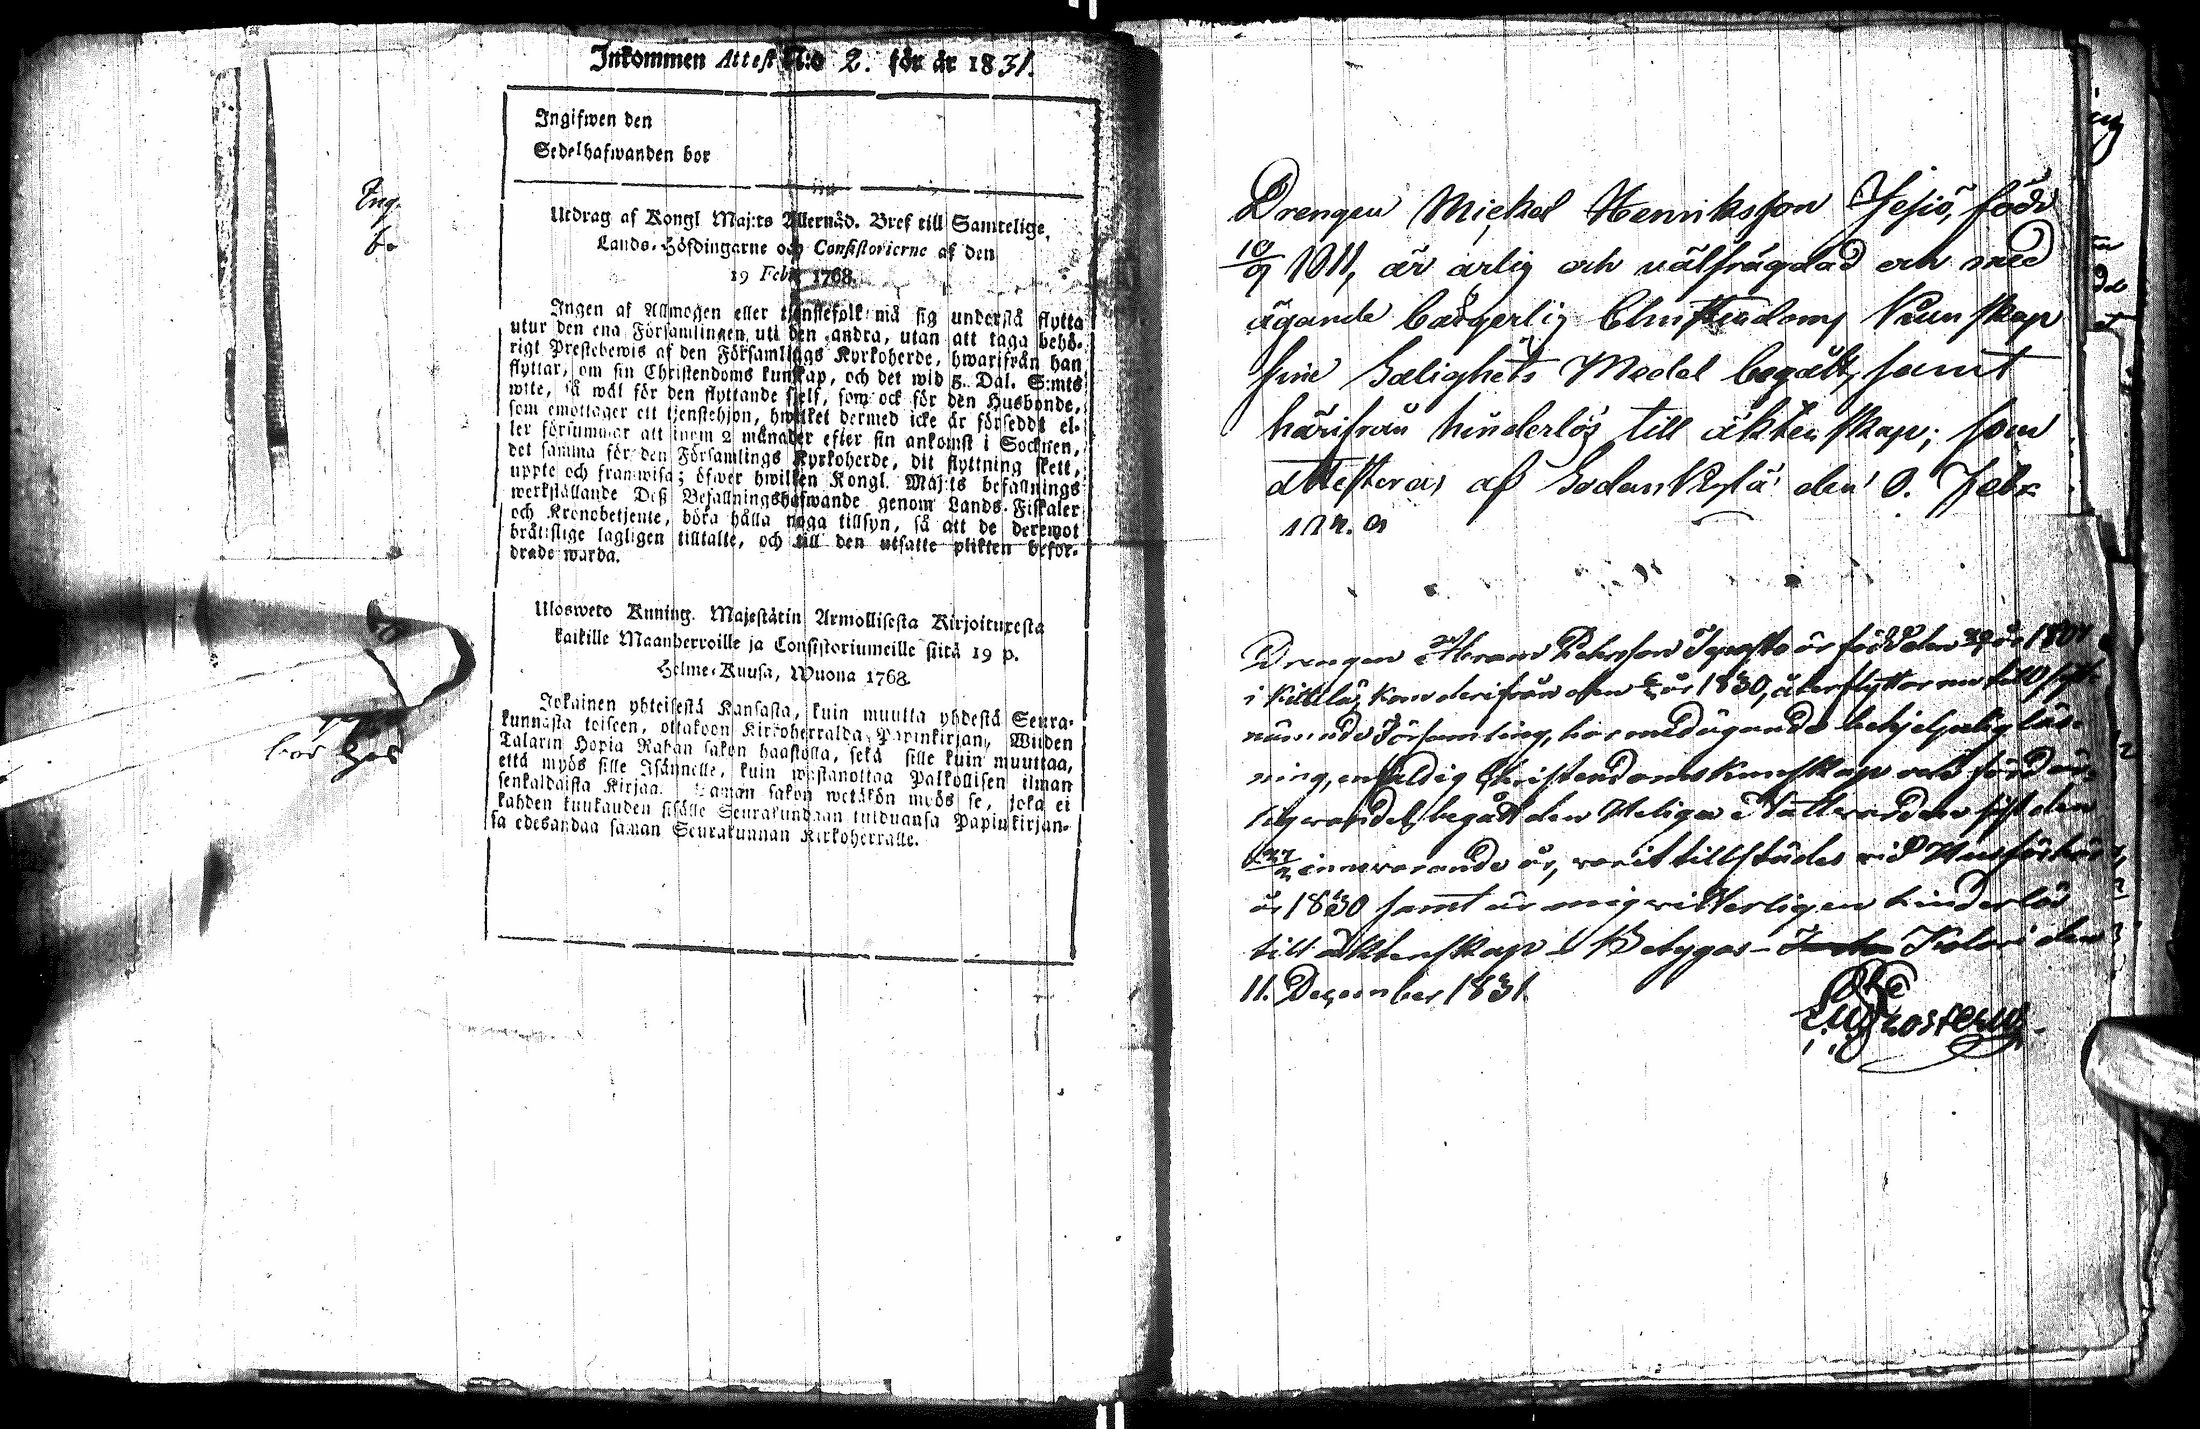 Inkommen Attest N:o 2. för år 1831.
Ingifwen den
Sedelhafwanden bor
Utdrag af Kongl Maj:ts Allernåd. Bref till Samtelige
Lands-Höfdingarne och Consistorierne af den
19 Febr. 1768.
Ingen af Allmogen eller tjenstefolk må sig understå flytta
utur den ena Församlingen uti den andra, utan att taga behö-
rigt Prestebewis af den Församlings Kyrkoherde, hwarifrån han
flyttar, om sin Christendoms kunskap, och det wid 5. Dal. S:mts
wite, så wäl för den flyttande sjelf, som ock för den Husbonde,
som emottager ett tjenstehjon, hwilket dermed icke är förseddt el-
ler försummar att inom 2 månader efter sin ankomst i Socknen,
det samma för den Församlings Kyrkoherde, dit flyttning skett,
uppte och framwisa; öfwer hwilken Kongl. Maj:ts befallnings
werkställande Deß Befallningshafwande genom Lands-Fiskaler
och Kronobetjente, böra hålla noga tillsyn, så att de deremot
bråttslige lagligen tilltalte, och till den utsatte plikten befor-
drade warda.
Ulosweto Kuning. Majestätin Armollisesta Kirjoituxesta
kaikille Maanherroille ja Consistoriumeille siitä 19 p.
Helme-Kuusa, Wuona 1768.
Jokainen yhteisestä Kansasta, kuin muutta yhdestä Seura-
kunnasta toiseen, ottakoon Kirkoherralda Papinkirjan, Wiiden
Talarin Hopia Rahan sakon haastolla, sekä sille kuin muuttaa,
että myös sille Isännelle, kuin wastanottaa Palkollisen ilman
senkaldaista Kirjaa. Saman sakon wetäkön myös se, joka ei
kahden kuukauden sisälle Seurakundaan tulduansa Papinkirjan-
sa edesandaa saman Seurakunnan Kirkoherralle.
Drengen Mickel Henriksson Jesiö, född
1811, är ärlig och välfrägdad och med
ägande bärgerlig Christendoms Kunskap
sine Salighets Medel begått, samt
härifrån hinderlös till äktenskap; som
attesteras af Sodankylä den 8. Febr
Drengen Abram Pehrsson är född den år 1807
i Kittilä, kom derifrån den år 1830, återflyttar nu till
nämnde Församling, har medägande behjelpelig läs-
ning, enfaldig Christendomskunskap och förd är-
lig vandel, begått den Heliga Nattvarden sist den
innevarande år, varit tillstädes vid Husförhör
år 1830 samt är mig vitterligen hinderlös
till äktenskap Betygas Kolari den
11. December 1831.